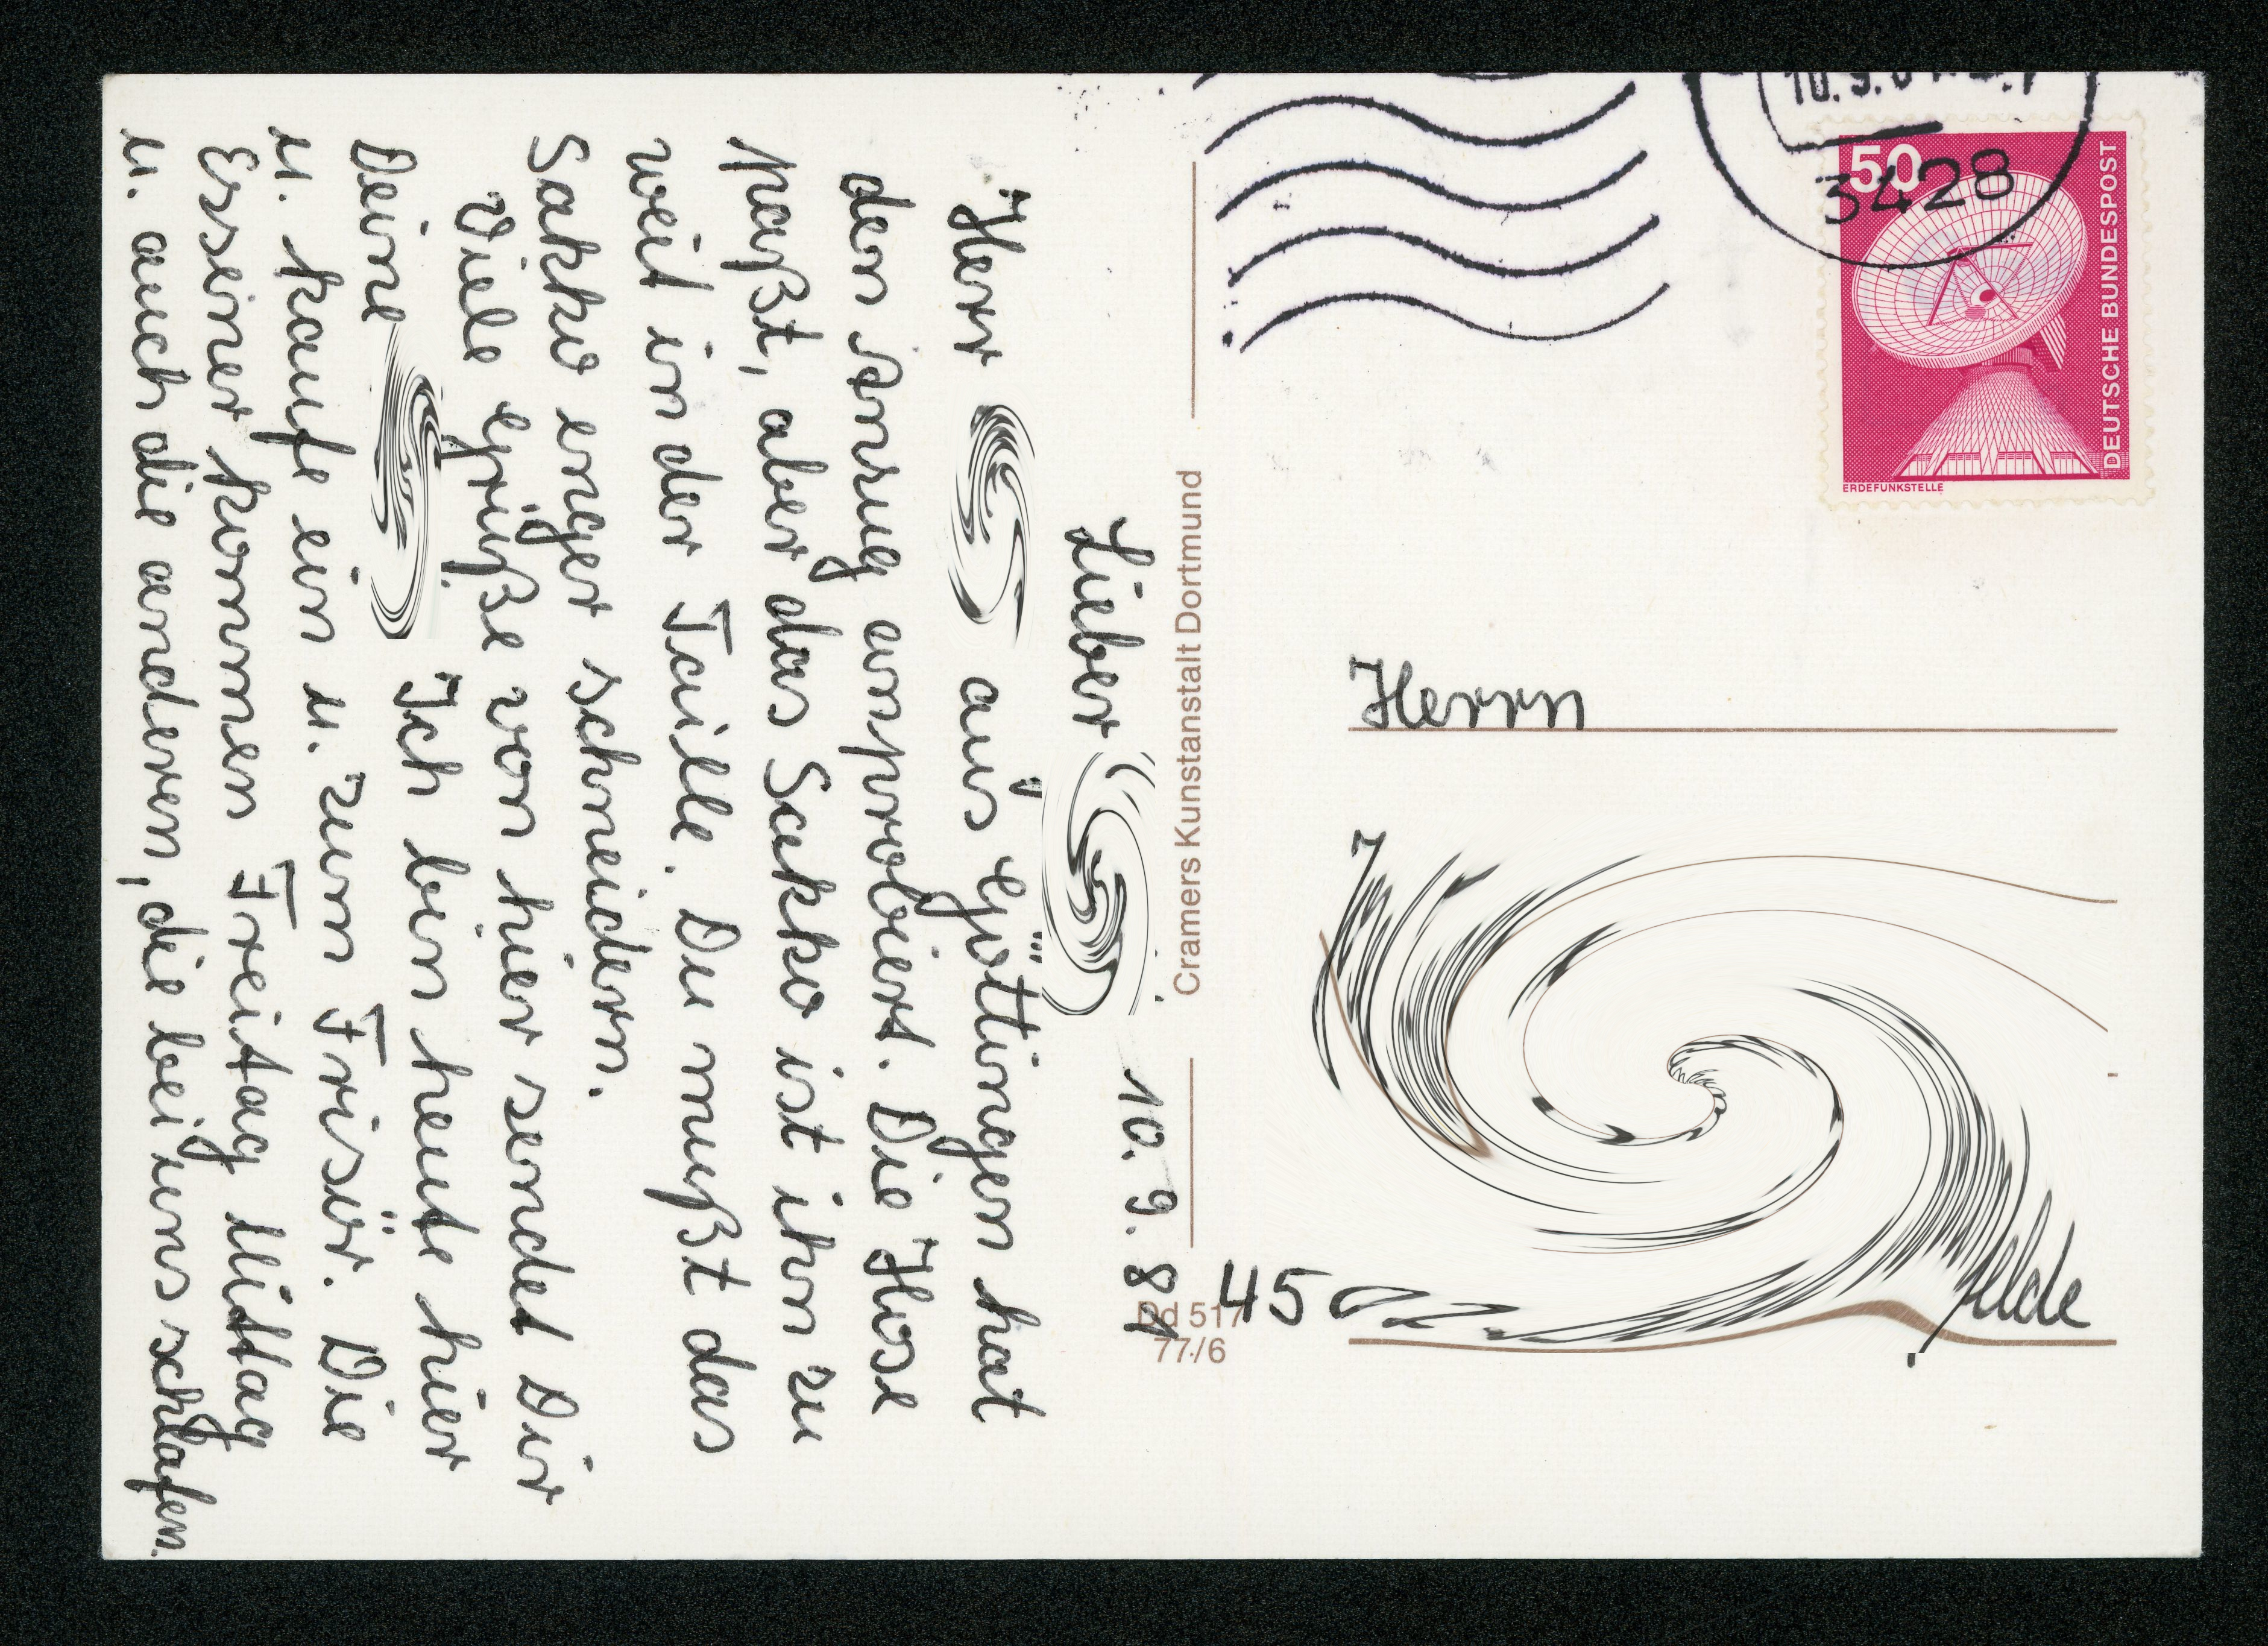 10.9.81
Lieber
Herr aus Göttingen hat
den Anzug anprobiert. Die Hose
paßt, aber das Sakko ist ihm zu
weit in der Taille. Du mußt das
Sakko enger schneidern.
Viele Grüße von hier sendet Dir
Deine Ich bin heute hier
u. kaufe ein u. zum Frisör. Die
Essener kommen Freitag Mittag
u. auch die anderen, die bei uns schlafen.
Cramers Kunstanstalt Dortmund
Dd 517
77/6
3428
50
DEUTSCHE BUNDESPOST
ERDEFUNKSTELLE
Herrn
45